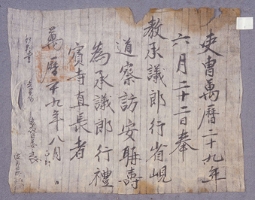 吏曹萬曆二十九年
六月二十二日奉
教承議郎行省峴
道察訪安聃壽
為承議郎行禮
賓寺直長者
萬曆二十九年八月 日